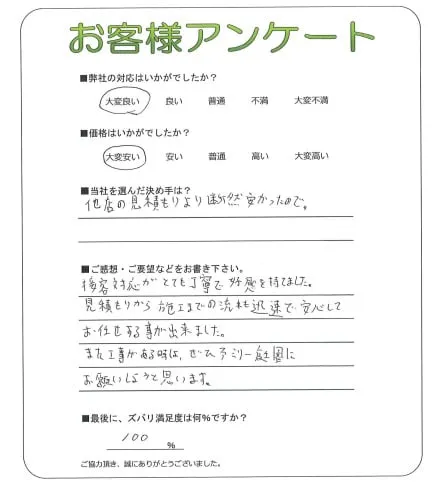 お客様アンケート
■弊社の対応はいかがでしたか?
大変良い 良い 普通 不満 大変不満
■価格はいかがでしたか?
大変安い 安い 普通 高い 大変高い
■当社を選んだ決め手は?
他店の見積もりより断然安かったので。
■ご感想・ご要望などをお書き下さい。
接客対応がとても丁寧で好感を持てました。
見積もりから施工までの流れも迅速で安心して
お任せする事が出来ました。
また工事がある時は、ぜひファミリー庭園に
お願いしようと思います。
■最後に、ズバリ満足度は何%ですか?
100 %
ご協力頂き、誠にありがとうございました。